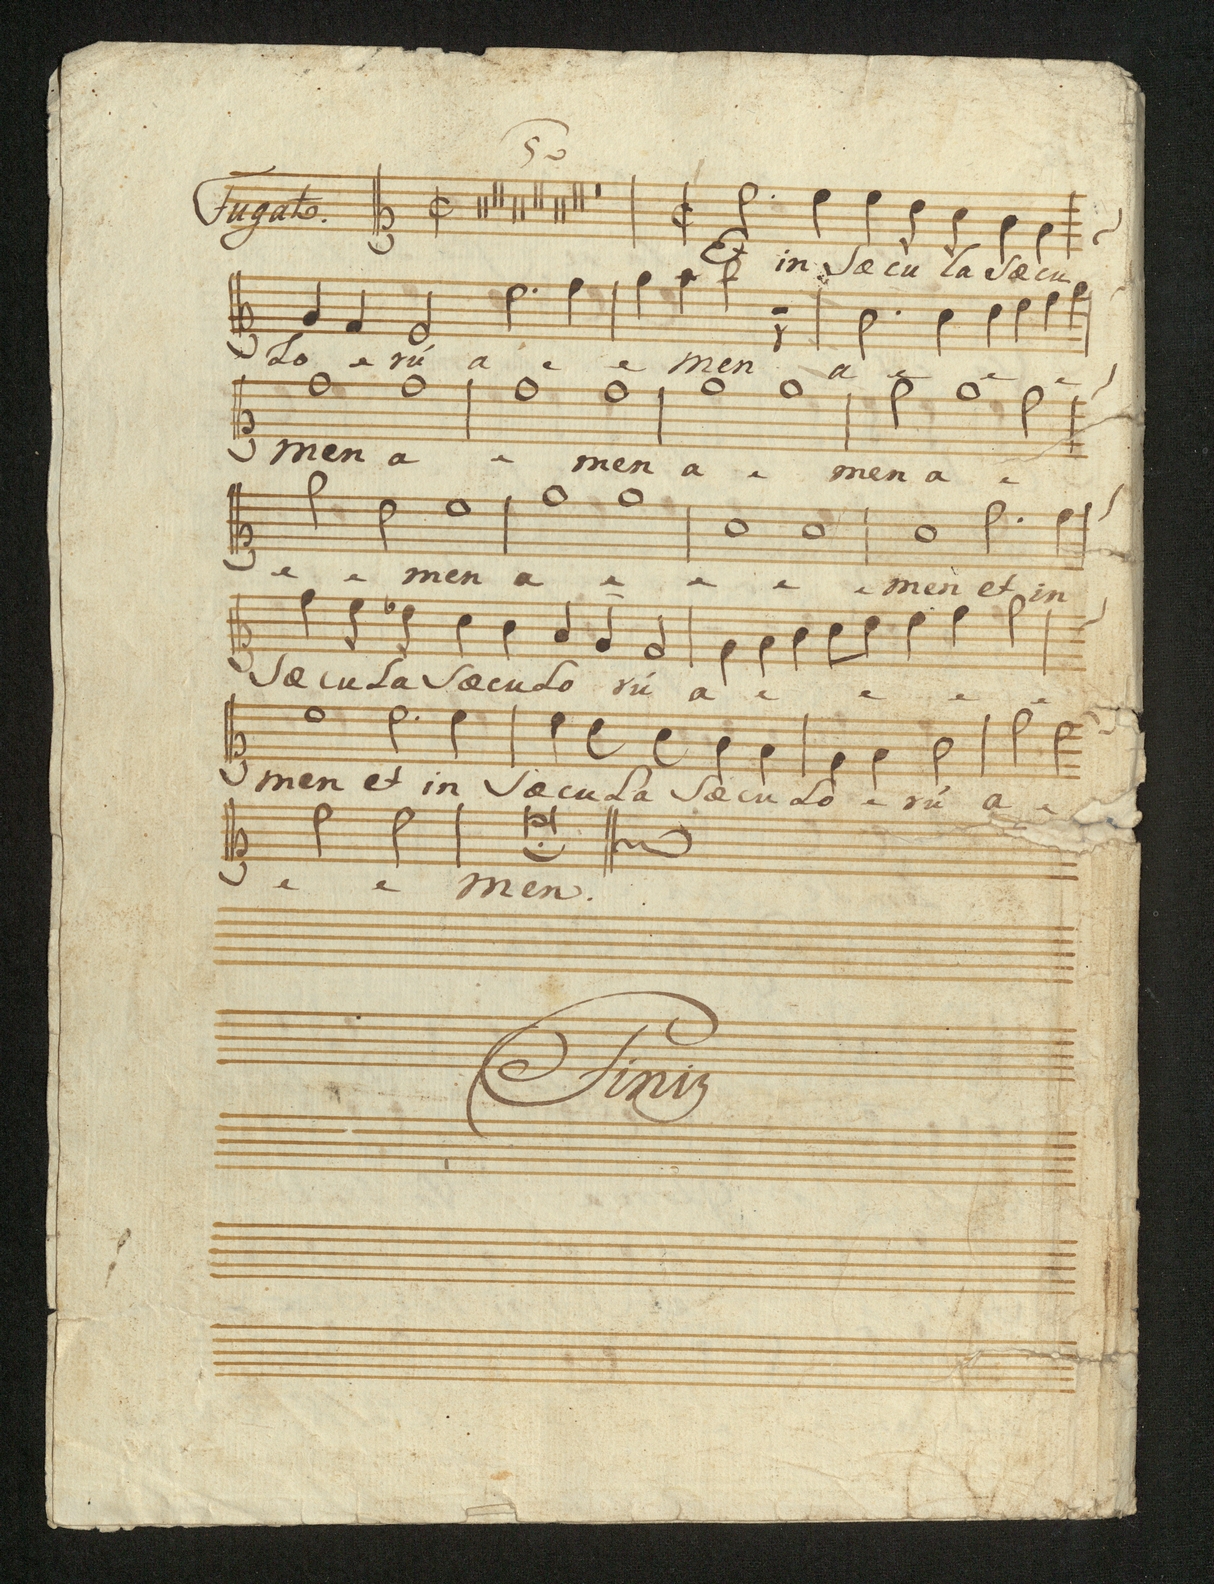 Fugato.
Et in Sæcu la Sæcu
Lo e rú a e e men a e e e
men a e men a e men a e
e e men a e e e e men et in
Sæcu La Sæcu Lo rú a e e e e
men et in Sæcu La Sæcu Lo e rú a e
e e men.
Finis